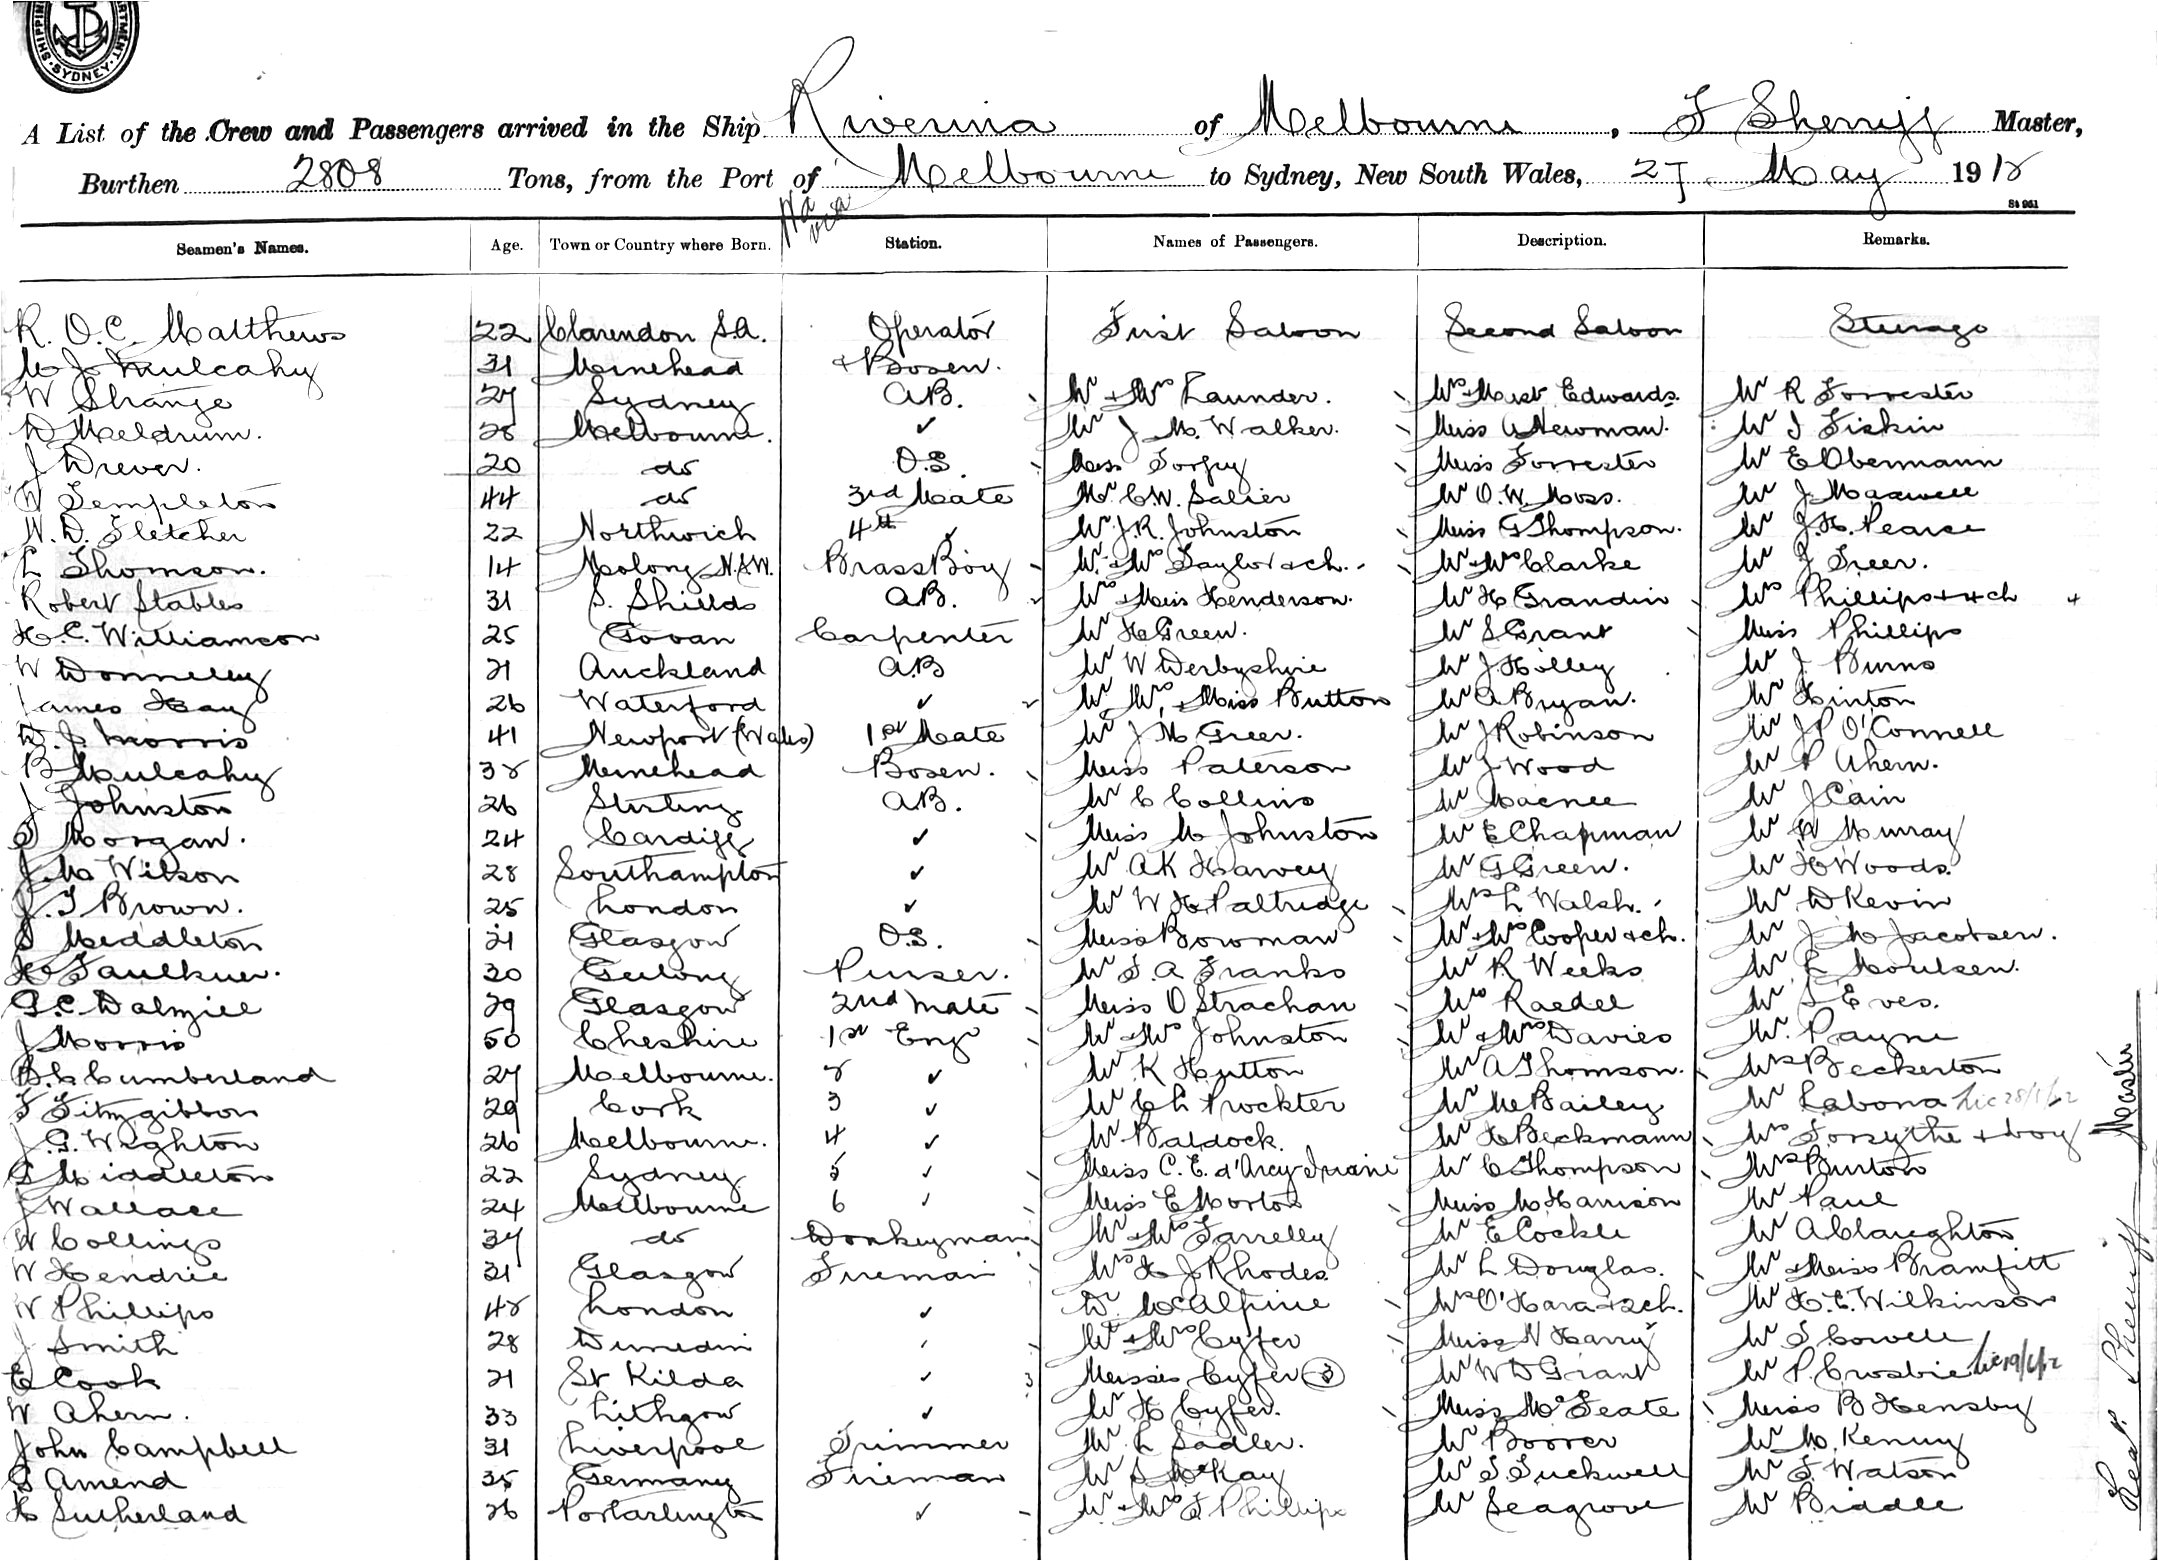 SHIPPING DEPARTMENT SYDNEY
A List of the Crew and Passengers arrived in the Ship Riverina of Melbourne, F Sherriff Master,
Burthen 2808 Tons, from the Port of Melbourne to Sydney, New South Wales, 27 May 1912
St 951
Seamen's Names. Age. Town or Country where Born. Station. Names of Passengers. Description. Remarks.
R. O.C. Matthews 22 Clarendon S.A. Operator First Saloon Second Saloon Steerage
M J Mulcahy 31 Minehead Bosen.
W Strange 27 Sydney A.B. Mr + Mrs Launder. Edwards. Mr R Forrester
D Meldrum. 28 Melbourne. ✓ Mr J M. Walker. Miss A Newman. Mr J Fiskin
J Drever. 20 do O.S. Miss Torpy Miss Forrester Mr E Obermann
W Templeton 44 do 3rd Mate Mr C.W. Salier Mr O.W. Moss. Mr J Maxwell
N. D. Fletcher 22 Northwich 4th ✓ Mr J.R. Johnston Miss G Thompson. Mr J.H. Pearce
L Thomson. 14 Molong N.S.W. Brass Boy Mr + Mrs Taylor + ch. Mr + Mrs Clarke Mr J Greer.
Robert Stables 31 S. Shields A.B. Mrs + Miss Henderson. Mr H Grandin Mrs Phillips + 4 ch 4
H.C. Williamson 25 Govan Carpenter Mr H Green. Mr S Grant Miss Phillips
W Donnelly 21 Auckland A.B Mr W Derbyshire Mr J Holley Mr J Burns
James Hay 26 Waterford ✓ Mr Mrs, + Miss Button Mr A Bryan. Mr Hinton
D. J. Morris 41 Newport (Wales) 1st Mate Mr J M Greer. Mr J Robinson Mr J P O'Connell
B Mulcahy 38 Minehead Bosen. Miss Paterson Mr J Wood Mr P Ahern.
J Johnston 26 Stirling A.B. Mr C Collins Mr Macnee Mr J Cain
S Morgan. 24 Cardiff ✓ Miss M Johnston Mr E Chapman Mr W Murray
J. M Wilson 28 Southampton ✓ Mr A K Harvey Mr G Green. Mr H Woods.
J. T Brown. 25 London ✓ Mr W H Paltridge Mrs L Walsh. Mr D Kevin
S Middleton 21 Glasgow O.S. Miss Bowman Mr + Mrs Cooper + ch. Mr J M Jacobsen.
H Faulkner. 30 Geelong Purser. Mr T. A Franks Mr R Weeks Mr L Moulsen.
G.C Dalziel 29 Glasgow 2nd Mate Miss O Strachan Mrs Raedel Mr S Eves.
J Morris 50 Cheshire 1st Eng Mr + Mrs Johnston Mr + Mrs Davies Mr. Payne
B. C Cumberland 27 Melbourne. 2 ✓ Mr K Hutton Mr A Thomson. Mrs Beckerton
F Fitzgibbon 29 Cork 3 ✓ Mr C L Prockter Mr M Bailey Mr Labona
J. G. Wighton 26 Melbourne. 4 ✓ Mr Baldock. Mr H Beckmann Mrs Forsythe + boy
S Middleton 22 Sydney 5 ✓ Miss C. E. d'Arcy Irvine Mr C Thompson Mrs Burton
J Wallace 24 Melbourne 6 ✓ Miss E Morton Miss M Harrison Mr Paul
W Collings 37 do Donkeyman Mr + Mrs Farrelly Mr E Cockle Mr A Claughton
W Hendrie 31 Glasgow Fireman Mrs H J Rhodes. Mr L Douglas. Mr + Miss Bramfitt
W Phillips 48 London ✓ Dr McAlpine Mrs O'Hara + 2 ch. Mr H. E. Wilkinson
J Smith 28 Dunedin ✓ Mr + Mrs Cyfer Miss N Harry Mr S Cowell
E Cook 21 St Kilda ✓ 3 Misses Cyfer (3) Mr W D Grant Mr P. Crosbie
W Ahern. 33 Lithgow ✓ Mr H Cyfer. Miss McFeate Miss B Hensby
John Campbell 31 Liverpool Trimmer Mr L Sadler. Mr Boorer Mr M. Kenny
G Amend 35 Germany Fireman Mr S McKay Mr T Tuckwell Mr T. Watson
H Sutherland 26 Portarlington ✓ Mr + Mrs T Phillips Mr Seagrove Mr Biddle
Master